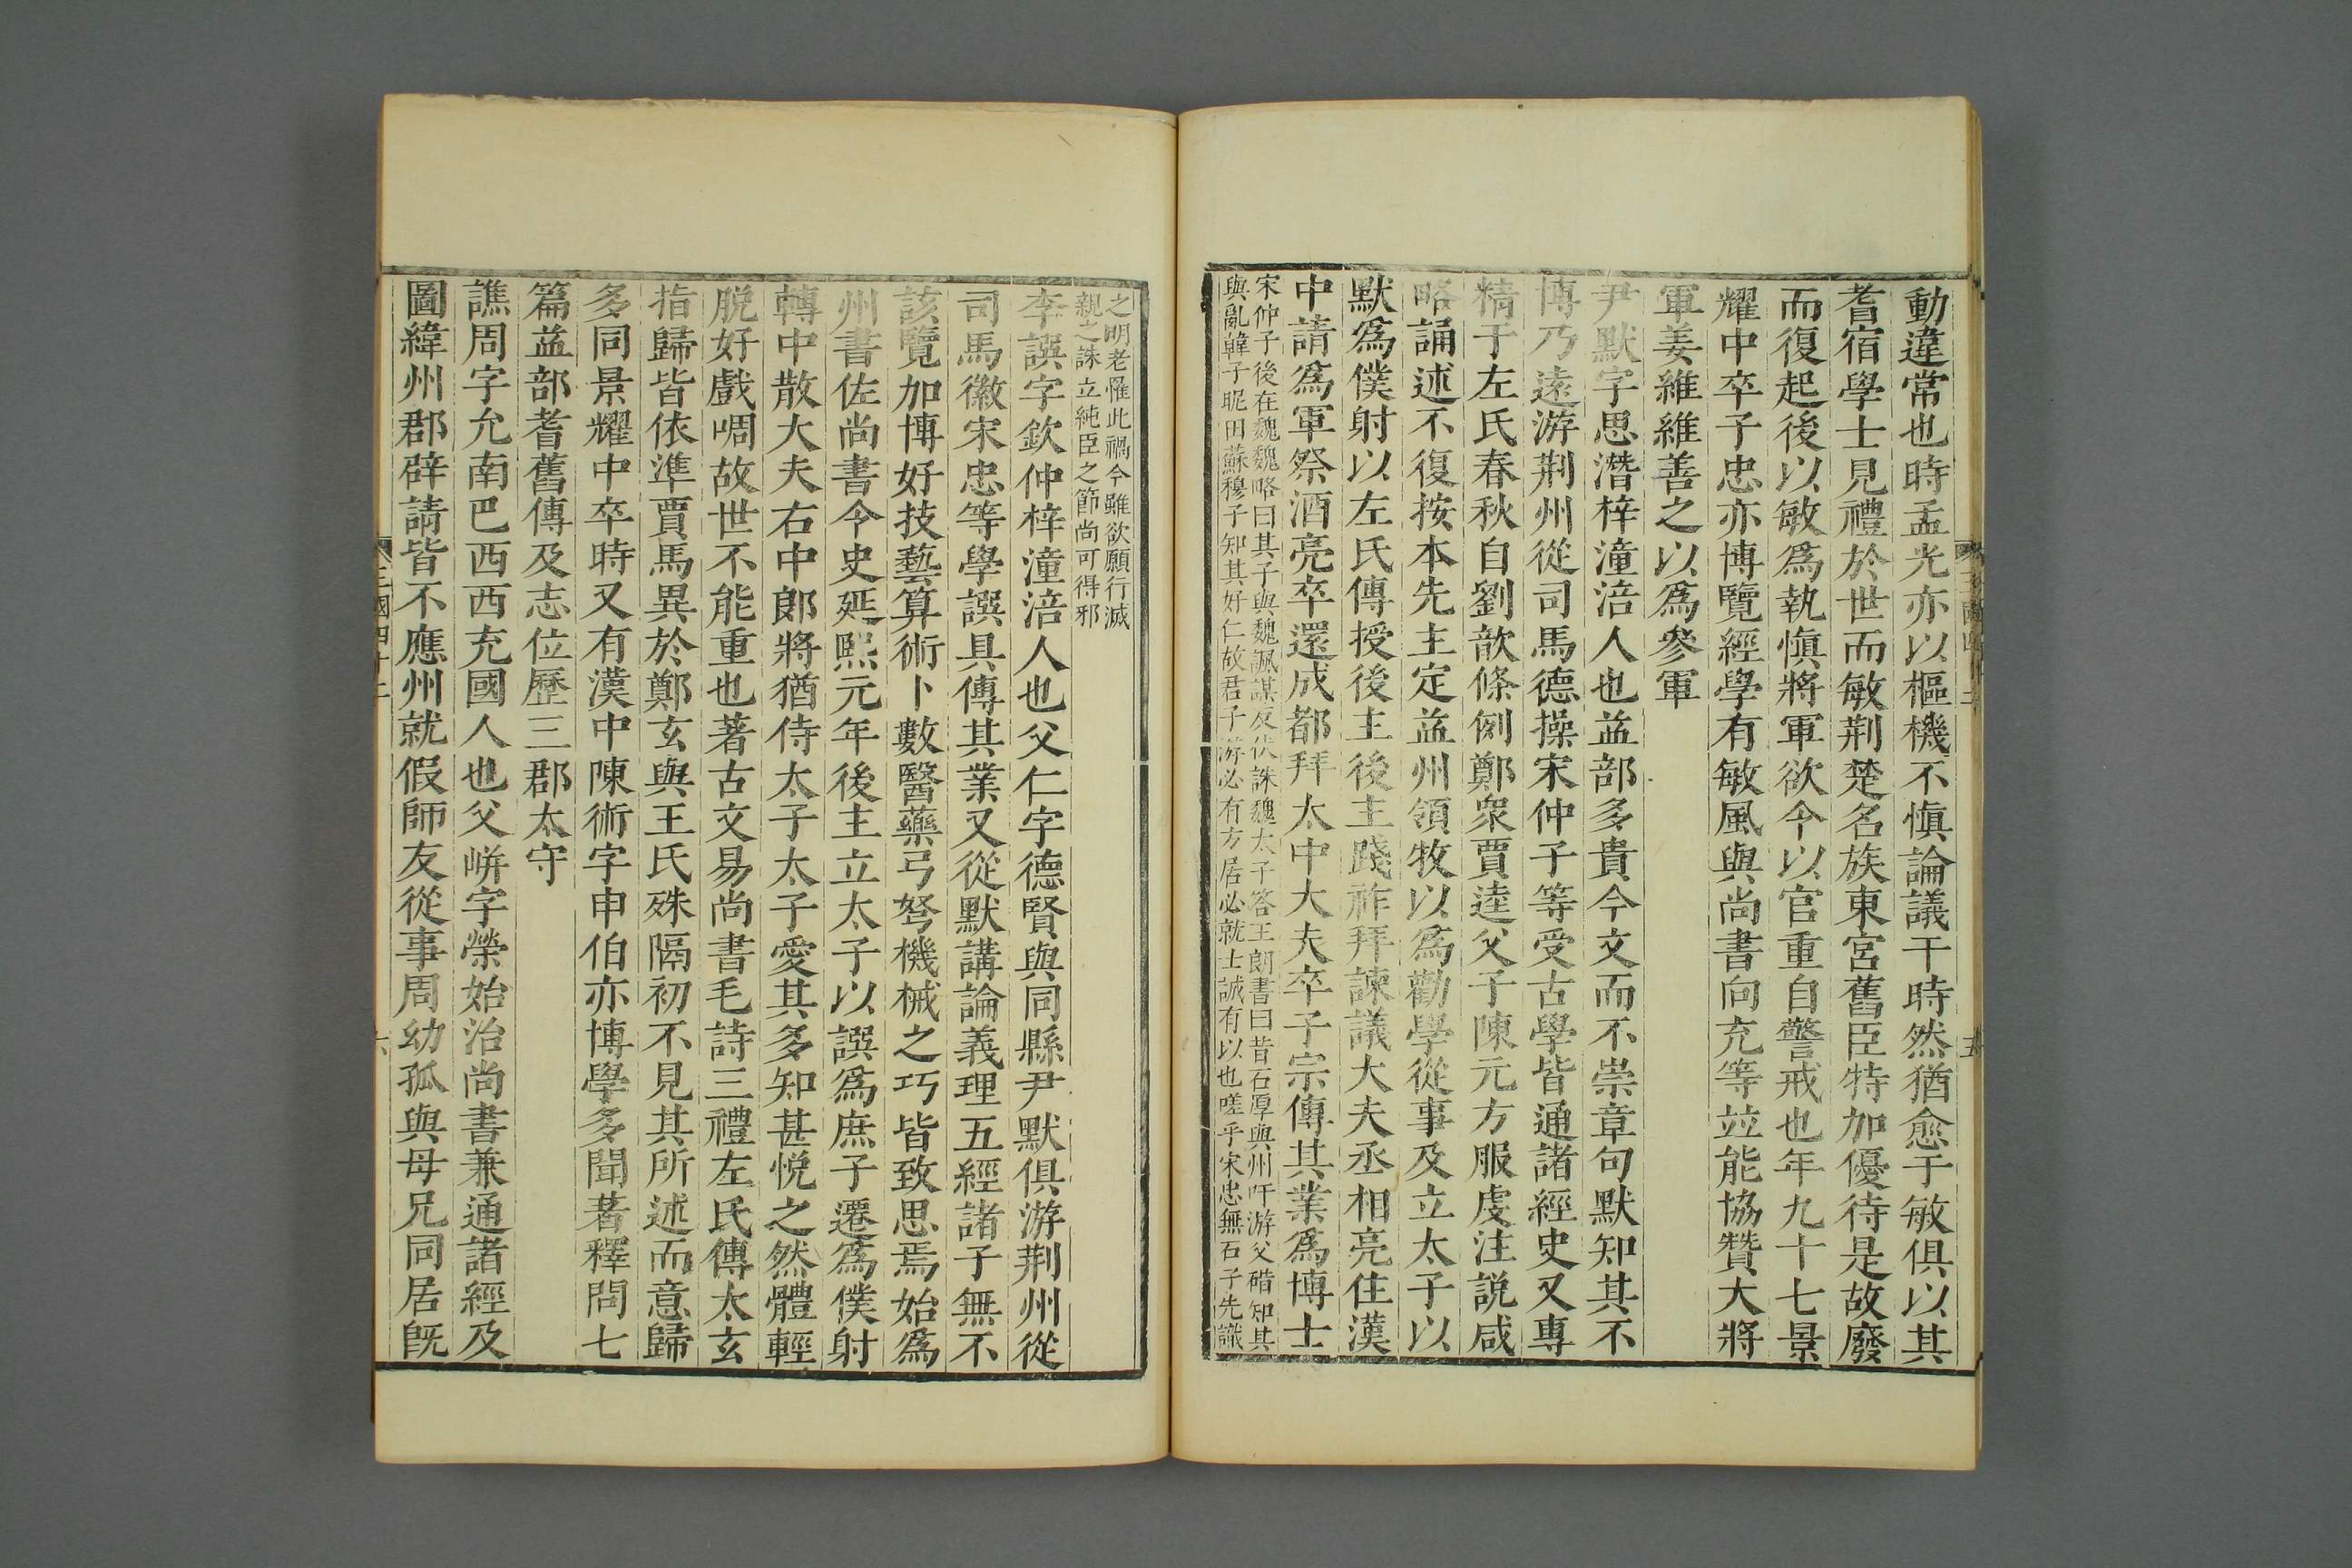 動違常也時孟光亦以樞機不愼論議干時然猶愈于敏俱以其
耆宿學士見禮於世而敏荆楚名族東宮舊臣特加優待是故廢
而復起後以敏爲執愼將軍欲令以官重自警戒也年九十七景
耀中卒子忠亦博覽經學有敏風與尚書向充等竝能協贊大將
軍姜維維善之以爲參軍
尹默字思潛梓潼涪人也益部多貴今文而不崇章句默知其不
博乃遠游荆州從司馬德操宋仲子等受古學皆通諸經史又專
精于左氏春秋自劉歆條例鄭衆賈逵父子陳元方服虔注説咸
略誦述不復按本先主定益州領牧以爲勸學從事及立太子以
默爲僕射以左氏傳授後主後主踐祚拜諫議大夫丞相亮住漢
中請爲軍祭酒亮卒還成都拜太中大夫卒子宗傳其業爲博士
宋仲子後在魏魏略曰其子與魏諷謀反伏誅魏太子答王朗書曰昔石厚與州吁游父碏知其
與亂韓子昵田蘇穆子知其好仁故君子游必有方居必就士誠有以也嗟乎宋忠無石子先識
之明老罹此禍今雖欲願行滅
親之誅立純臣之節尚可得邪
李譔字欽仲梓潼涪人也父仁字德賢與同縣尹默俱游荆州從
司馬徽宋忠等學譔具傳其業又從默講論義理五經諸子無不
該覽加博好技藝算術卜數醫藥弓弩機械之巧皆致思焉始爲
州書佐尚書令史延熙元年後主立太子以譔爲庶子遷爲僕射
轉中散大夫右中郎將猶侍太子太子愛其多知甚悦之然體輕
脱好戲啁故世不能重也著古文易尚書毛詩三禮左氏傳太玄
指歸皆依準賈馬異於鄭玄與王氏殊隔初不見其所述而意歸
多同景耀中卒時又有漢中陳術字申伯亦博學多聞著釋問七
篇益部耆舊傳及志位歷三郡太守
譙周字允南巴西西充國人也父𡸫字榮始治尚書兼通諸經及
圖緯州郡辟請皆不應州就假師友從事周幼孤與母兄同居旣
三國四十二
六